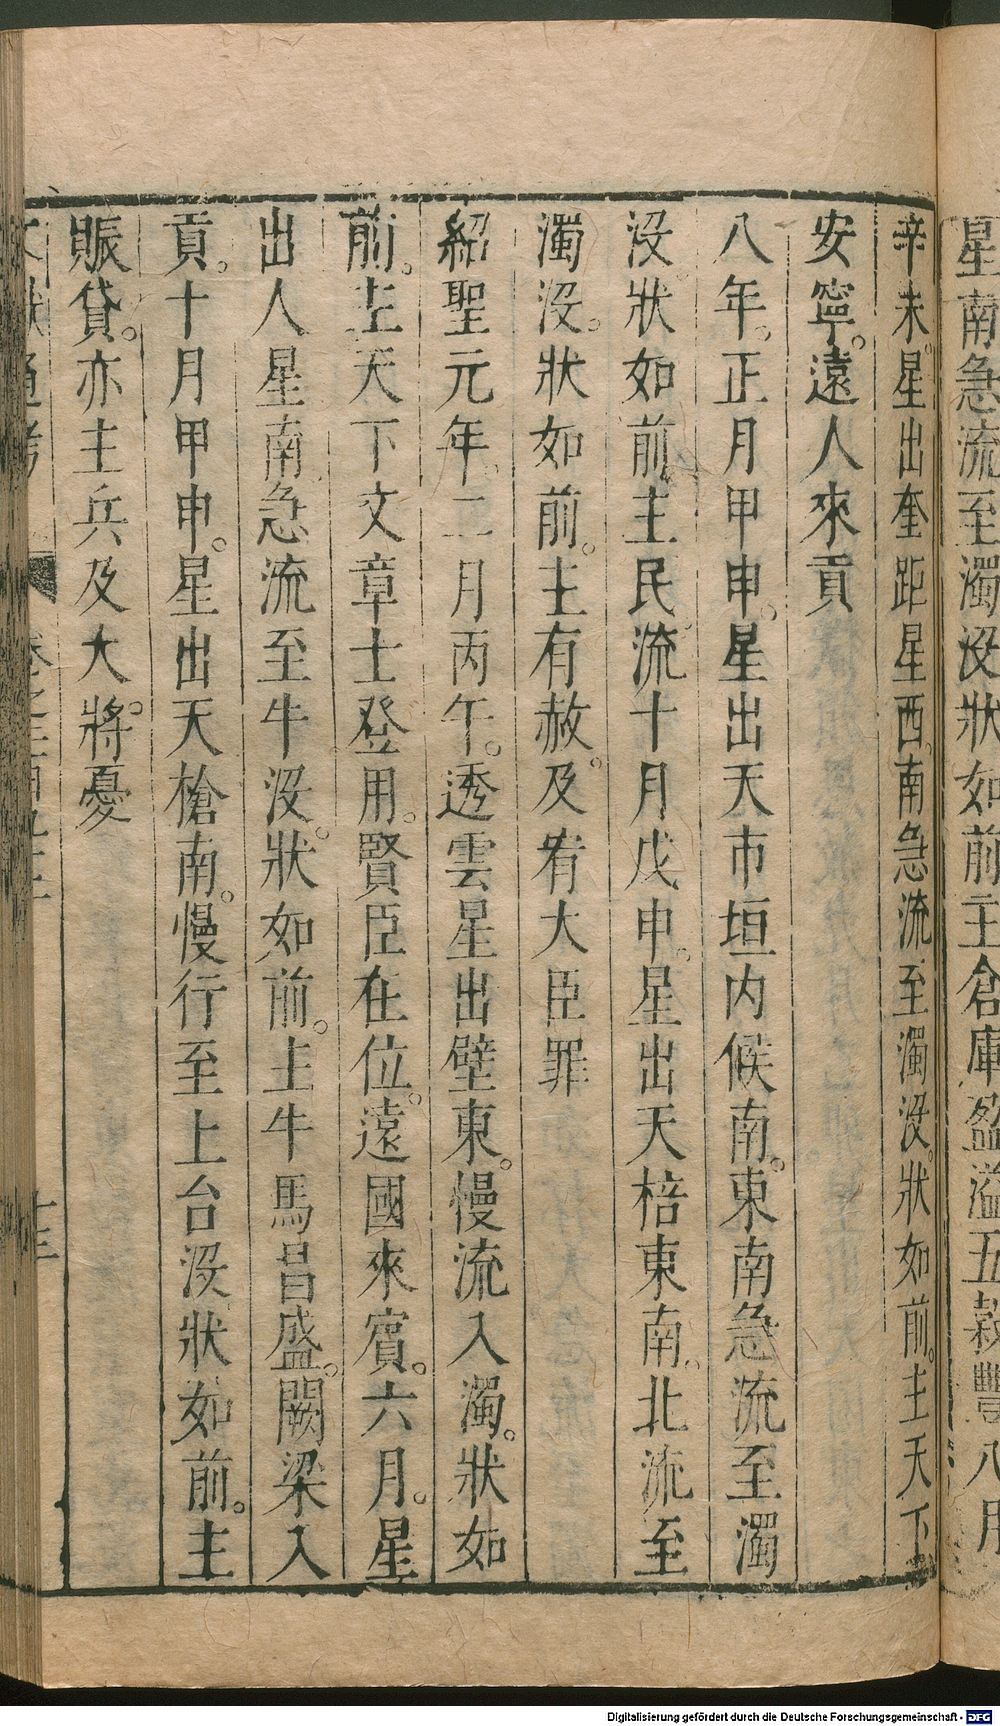 星南急流至濁没狀如前主倉庫盈溢五穀豐八月
辛未。星出奎距星西。南急流至濁没。狀如前。主天下
安寧。遠人來貢
八年。正月甲申。星出天市垣内候南。東南急流至濁
没。狀如前主民流十月戊申。星出天棓東南。北流至
濁没。狀如前。主有赦。及宥大臣罪
紹聖元年二月丙午。透雲星出壁東。慢流入濁。狀如
前。主天下文章士登用。賢臣在位。遠國來賓。六月。星
出人星南急流至牛没。狀如前。主牛馬昌盛。闕梁入
貢。十月甲申。星出天槍南。慢行至上台没狀如前。主
賑貸。亦主兵及大將。憂
獻通考 卷之二百九十二 十三
Digitalisierung gefördert durch die Deutsche Forschungsgemeinschaft - DFG